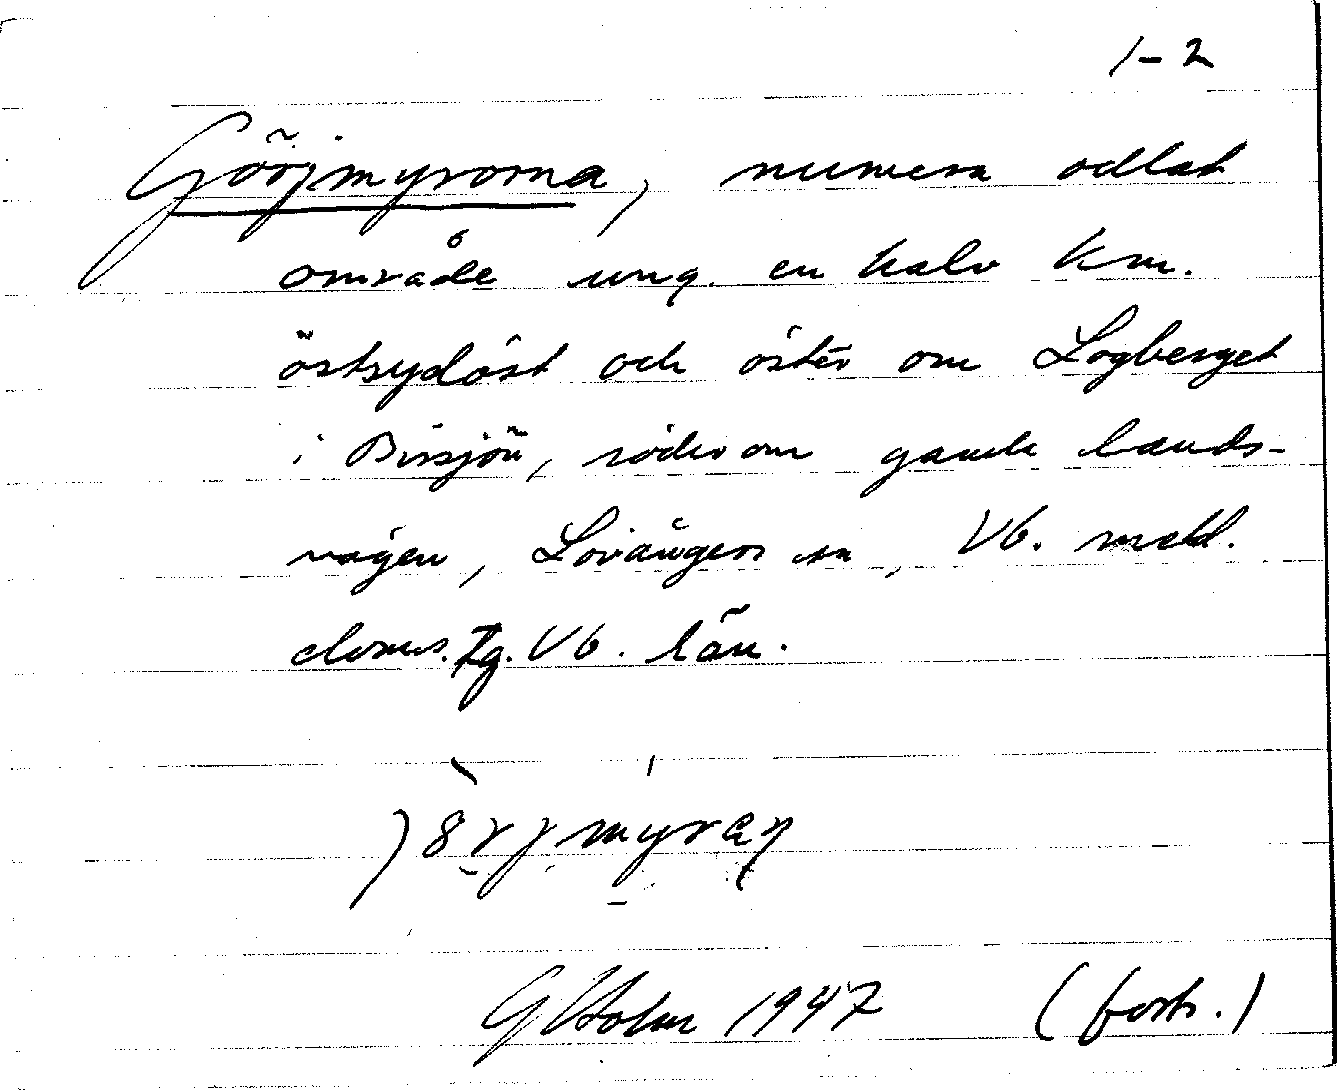 1-2
Göörjmyrorna, numera odlat
område ung. en halv km.
östsydöst och öster om Logberget
i Bissjön, söder om gamla lands-
vägen, Lövångers sn, Vb. mell.
doms. Tg. Vb. län.
G Holm 1947 (forts.)